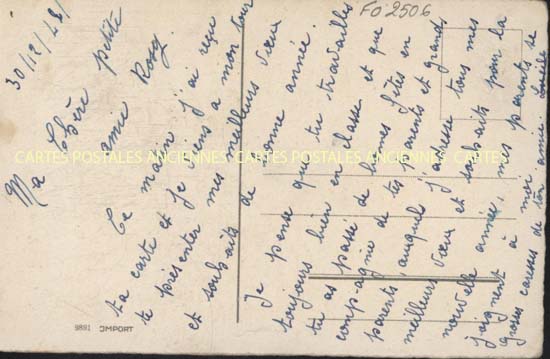 30/12/48
Ma Chère petite
amie Rosy.
Ce matin j'ai reçu
ta carte et je viens à mon tour
te présenter mes meilleurs vœux
et souhaits de bonne année.
Je pense que tu travailles
toujours bien en classe et que
tu as passé de bonnes fêtes en
compagnie de tes parents et grands
parents, auquel j'adresse tous mes
meilleurs vœux et souhaits pour la
nouvelle année, mes parents se
joignent à moi.
Grosses caresses de ton amie.
FO 2506
CARTES POSTALES ANCIENNES CARTES POSTALES ANCIENNES CARTES
9891 IMPORT